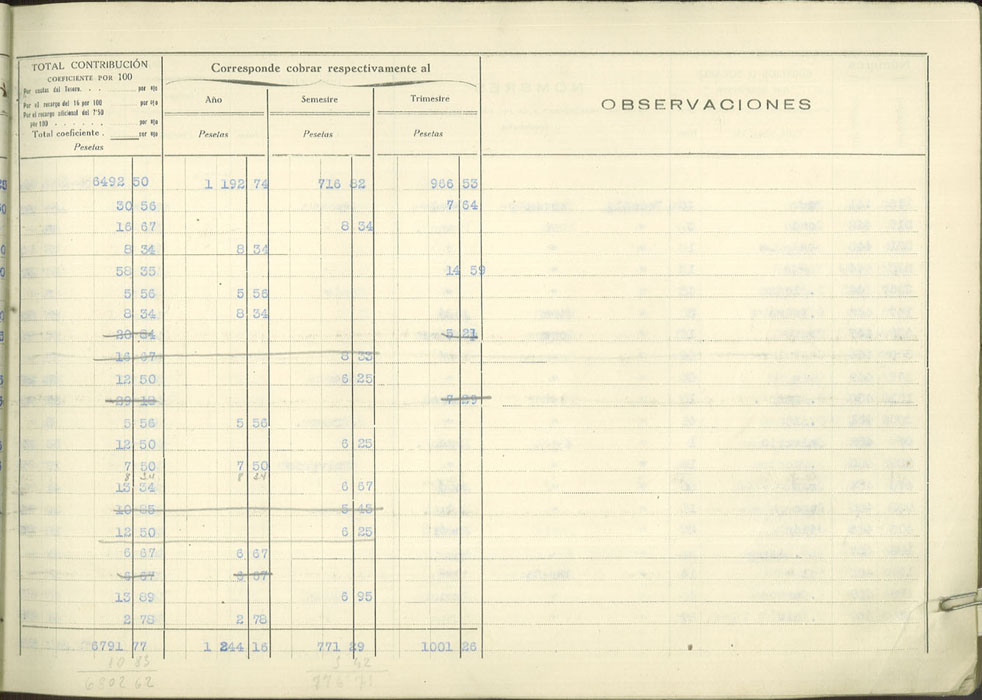 TOTAL CONTRIBUCIÓN
COEFICIENTE POR 100
Por cuotas del Tesoro. . . por %
Por el recargo del 16 por 100 por %
Por el recargo adicional del 7'50
por 100 . . . . . . por %
Total coeficiente . por %
Pesetas
Corresponde cobrar respectivamente al
Año
Pesetas
Semestre
Pesetas
Trimestre
Pesetas
OBSERVACIONES
6492 50 1 192 74 716 82 966 53
30 56 7 64
16 67 8 34
8 34 8 34
58 35 14 59
5 56 5 56
8 34 8 34
20 84 5 21
16 67 8 33
12 50 6 25
29 18 7 29
5 56 5 56
12 50 6 25
7 50 7 50
8 34 8 34
13 34 6 67
10 85 5 43
12 50 6 25
6 67 6 67
6 67 6 67
13 89 6 95
2 78 2 78
6791 77 1 244 16 771 29 1001 26
10 85 5 42
6802 62 776 71